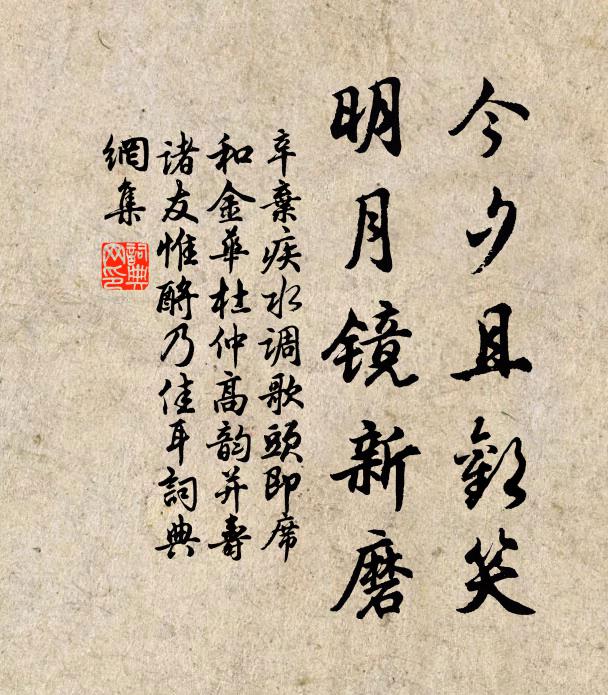 今夕且歡笑
明月镜新磨
辛棄疾水调歌頭即席
和金華杜仲高韵并壽
诸友惟酹乃佳耳詞典
網集
詞典网印